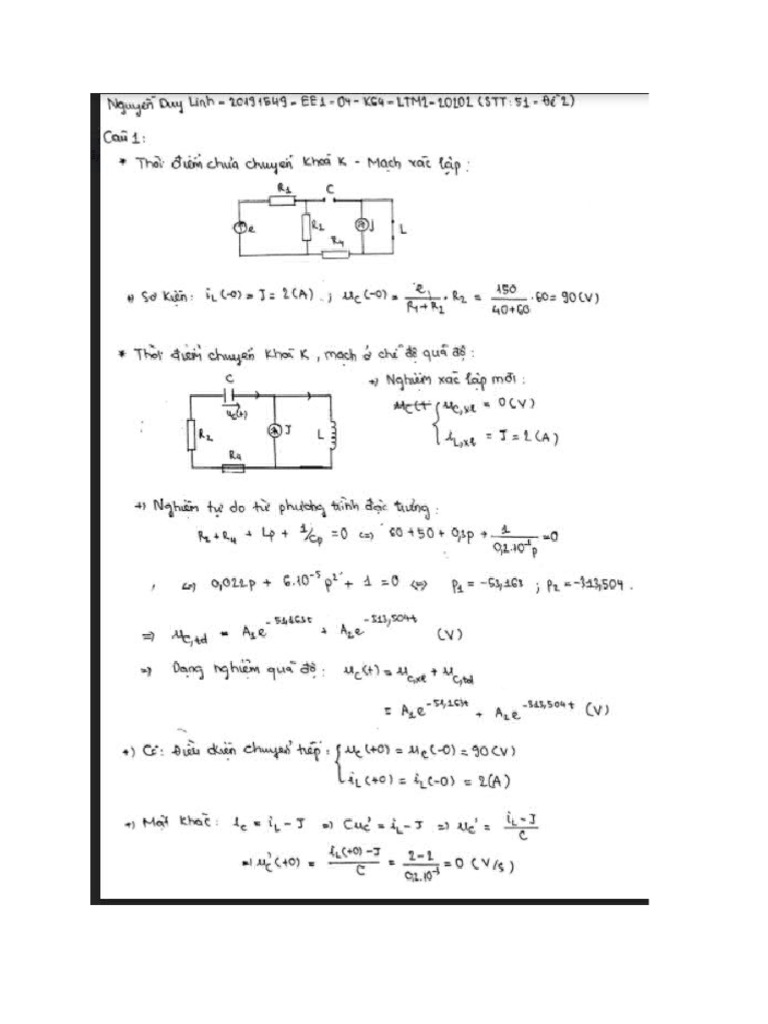 Nguyễn Duy Linh - 20191549 - EE1 - 04 - K64 - LTM1 - 20202 (STT: 51 - Đề 2)
Câu 1:
* Thời điểm chưa chuyển khoá K - Mạch xác lập:
R1 C
e R2 J L
R4
+) Sơ kiện: iL(-0) = J = 2(A) ; uC(-0) = e1/(R1+R2) . R2 = 150/(40+60) . 60 = 90(V)
* Thời điểm chuyển khoá K, mạch ở chế độ quá độ:
+) Nghiệm xác lập mới:
C
uC(t)
R2 J L
R4
uC,xl = 0(V)
iL,xl = J = 2(A)
+) Nghiệm tự do từ phương trình đặc trưng:
R2 + R4 + Lp + 1/Cp = 0 <=> 60 + 50 + 0,3p + 1/(0,2.10⁻³p) = 0
<=> 0,022p + 6.10⁻⁵p² + 1 = 0 <=> p1 = -53,163 ; p2 = -313,504.
=> uC,td = A1e^(-53,163t) + A2e^(-313,504t) (V)
=> Dạng nghiệm quá độ: uC(t) = uC,xl + uC,td
= A1e^(-53,163t) + A2e^(-313,504t) (V)
+) Có: Điều kiện chuyển tiếp: uC(+0) = uC(-0) = 90(V)
iL(+0) = iL(-0) = 2(A)
+) Mặt khác: iC = iL - J => CuC' = iL - J => uC' = (iL - J)/C
=> uC'(+0) = (iL(+0) - J)/C = (2-2)/(0,2.10⁻³) = 0 (V/s)